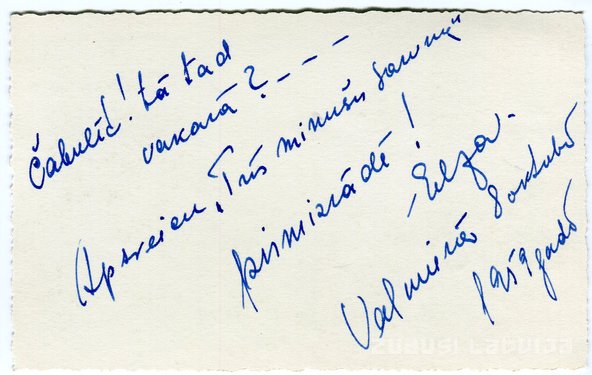 Čabulīt! tā tad
vakarā? - - - -
Apsveicu „Trīs minušu
pirmizrādē!
-Elza-
Valmierā 8 oktobrī
1959 gadā
zudusi Latvija